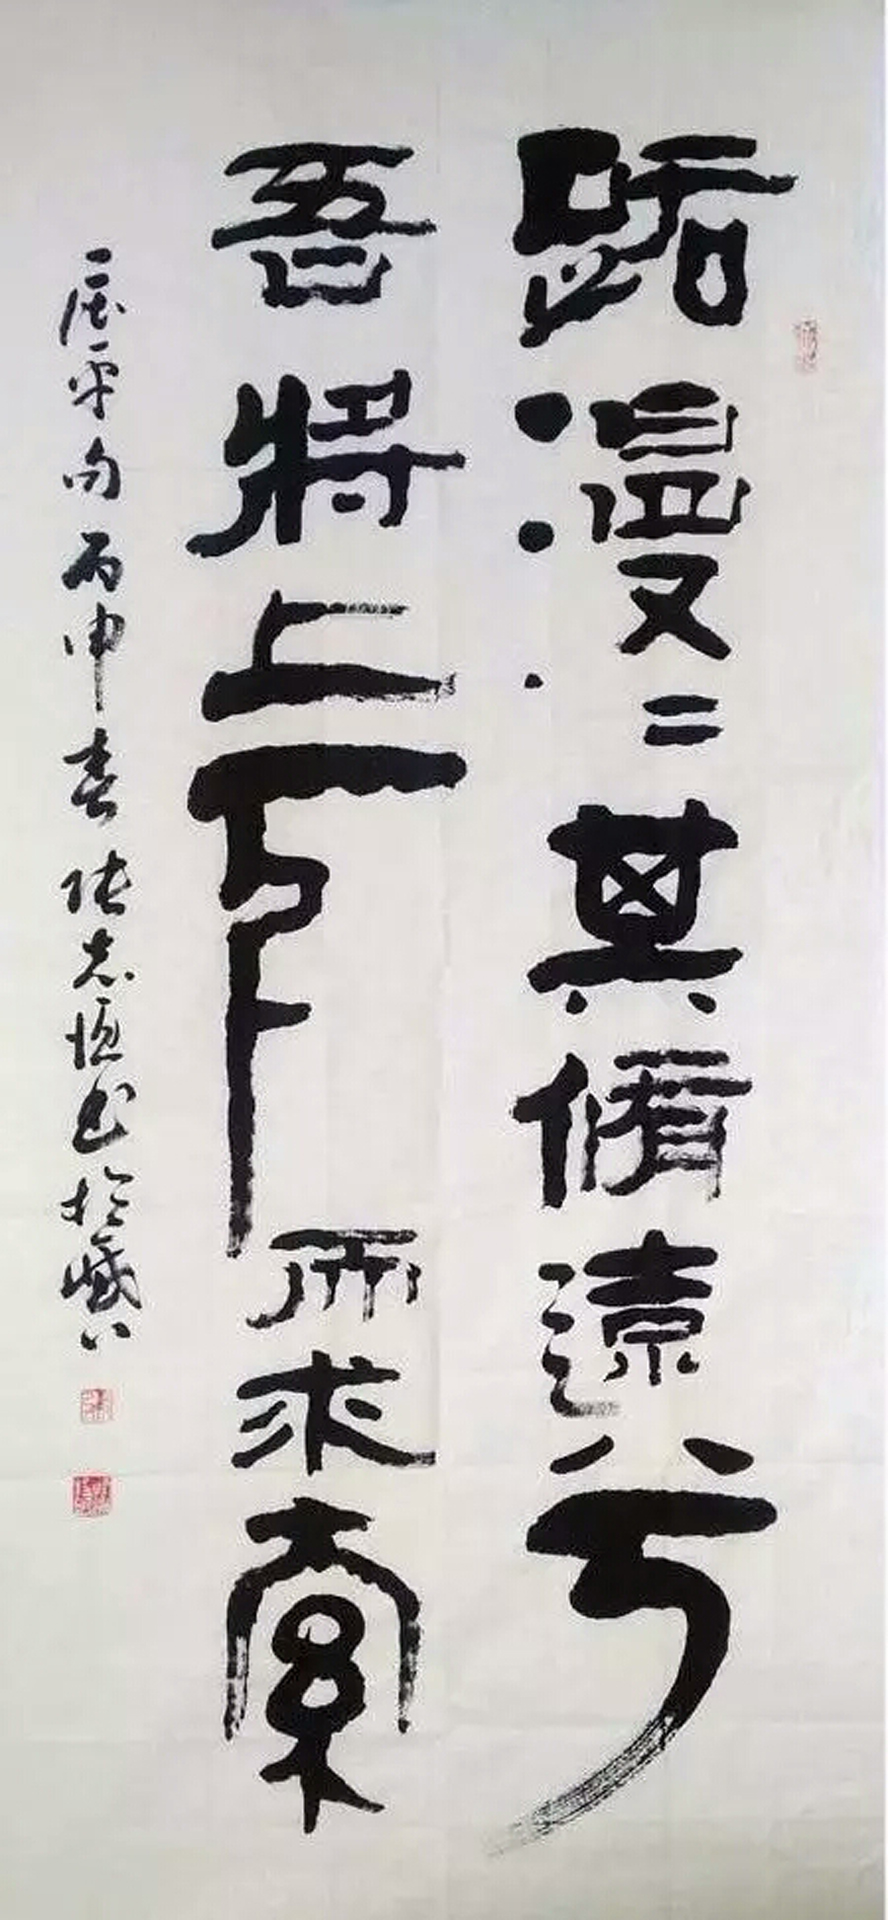 路漫〻其脩遠兮
吾將上下而求索
屈平句丙申春張志恒书於